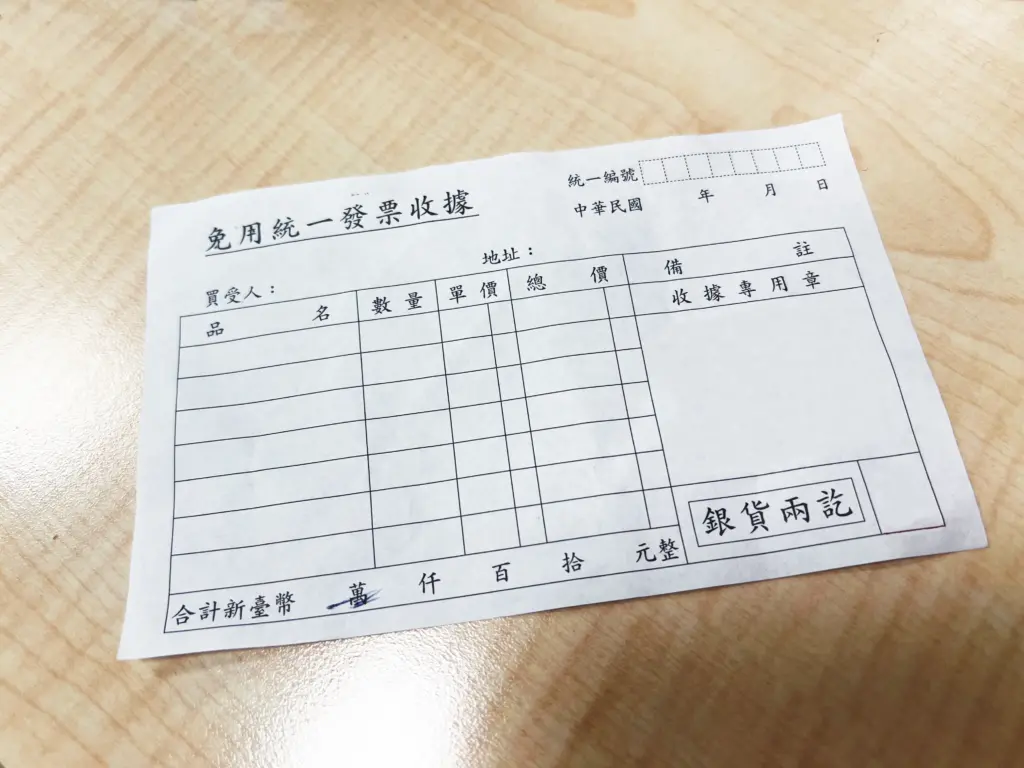 免用統一發票收據
統一編號
中華民國 年 月 日
買受人： 地址：
品名 數量 單價 總價 備註
收據專用章
銀貨兩訖
合計新臺幣 萬 仟 百 拾 元整